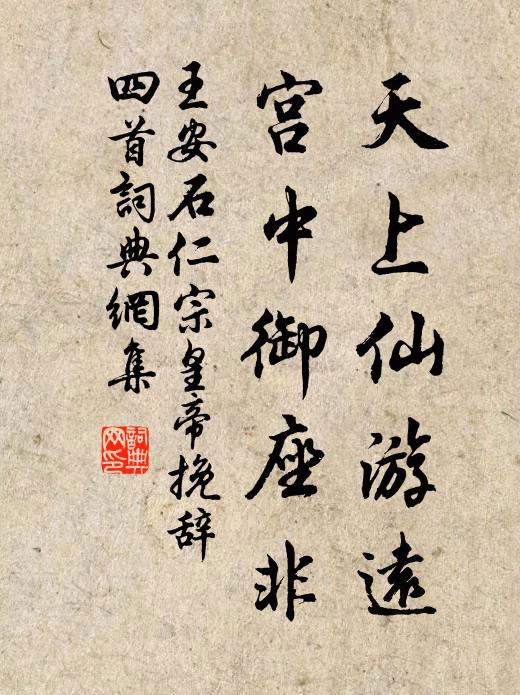 天上仙游遠
宫中御座非
王安石仁宗皇帝挽辞
四首詞典網集
詞典
网印